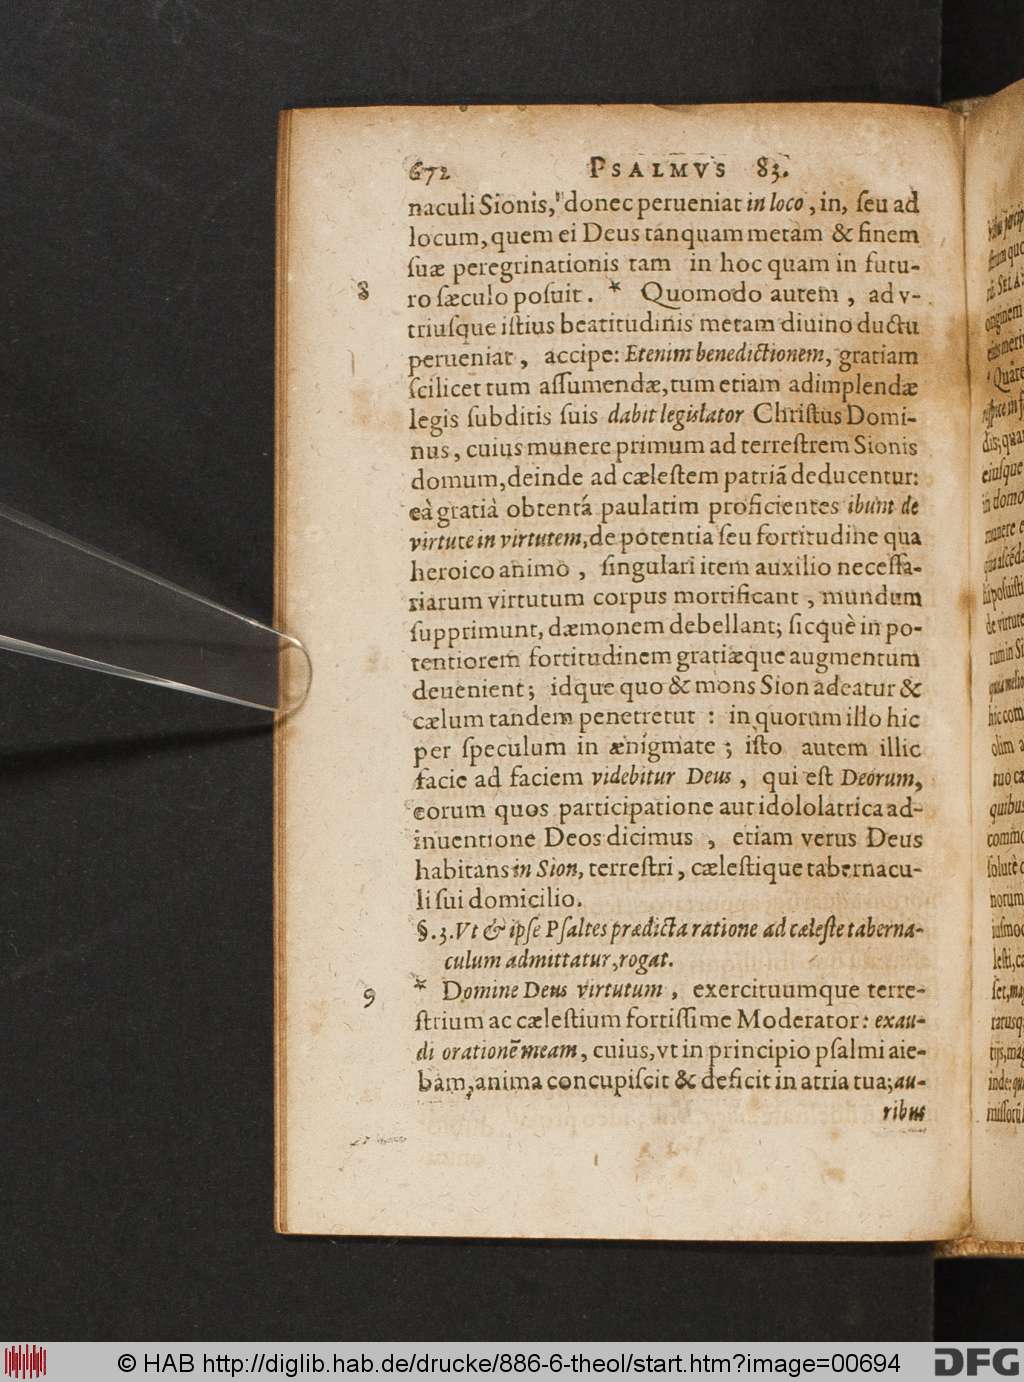 672 PSALMVS 83.
naculi Sionis, donec perueniat in loco, in, ſeu ad
locum, quem ei Deus tanquam metam & finem
ſuæ peregrinationis tam in hoc quam in futu-
8 ro ſæculo poſuit. * Quomodo autem, ad v-
triuſque iſtius beatitudinis metam diuino ductu
perueniat, accipe: Etenim benedictionem, gratiam
ſcilicet tum aſſumendæ, tum etiam adimplendæ
legis ſubditis ſuis dabit legislator Chriſtus Domi-
nus, cuius munere primum ad terreſtrem Sionis
domum, deinde ad cæleſtem patriã deducentur:
eà gratiâ obtentâ paulatim proficientes ibunt de
virtute in virtutem, de potentia ſeu fortitudine qua
heroico animo, ſingulari item auxilio neceſſa-
riarum virtutum corpus mortificant, mundum
ſupprimunt, dæmonem debellant; ſicquè in po-
tentiorem fortitudinem gratiæque augmentum
deuenient; idque quo & mons Sion adeatur &
cælum tandem penetretut : in quorum illo hic
per ſpeculum in ænigmate; iſto autem illic
facie ad faciem videbitur Deus, qui eſt Deorum,
eorum quos participatione aut idololatrica ad-
inuentione Deos dicimus, etiam verus Deus
habitans in Sion, terreſtri, cæleſtique tabernacu-
li ſui domicilio.
§.3. Vt & ipſe Pſaltes prædicta ratione ad cæleſte taberna-
culum admittatur, rogat.
9 * Domine Deus virtutum, exercituumque terre-
ſtrium ac cæleſtium fortiſſime Moderator: exau-
di orationẽ meam, cuius, vt in principio pſalmi aie-
bam, anima concupiſcit & deficit in atria tua; au-
ribus
© HAB http://diglib.hab.de/drucke/886-6-theol/start.htm?image=00694
DFG